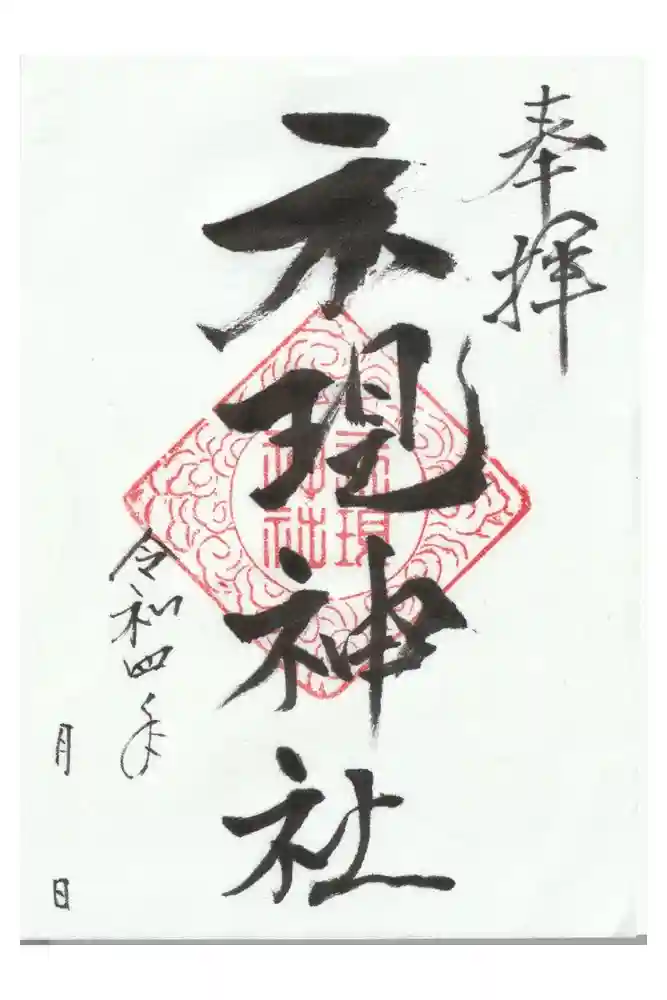 奉拝
示現神社
示現
神社
令和四年
月 日